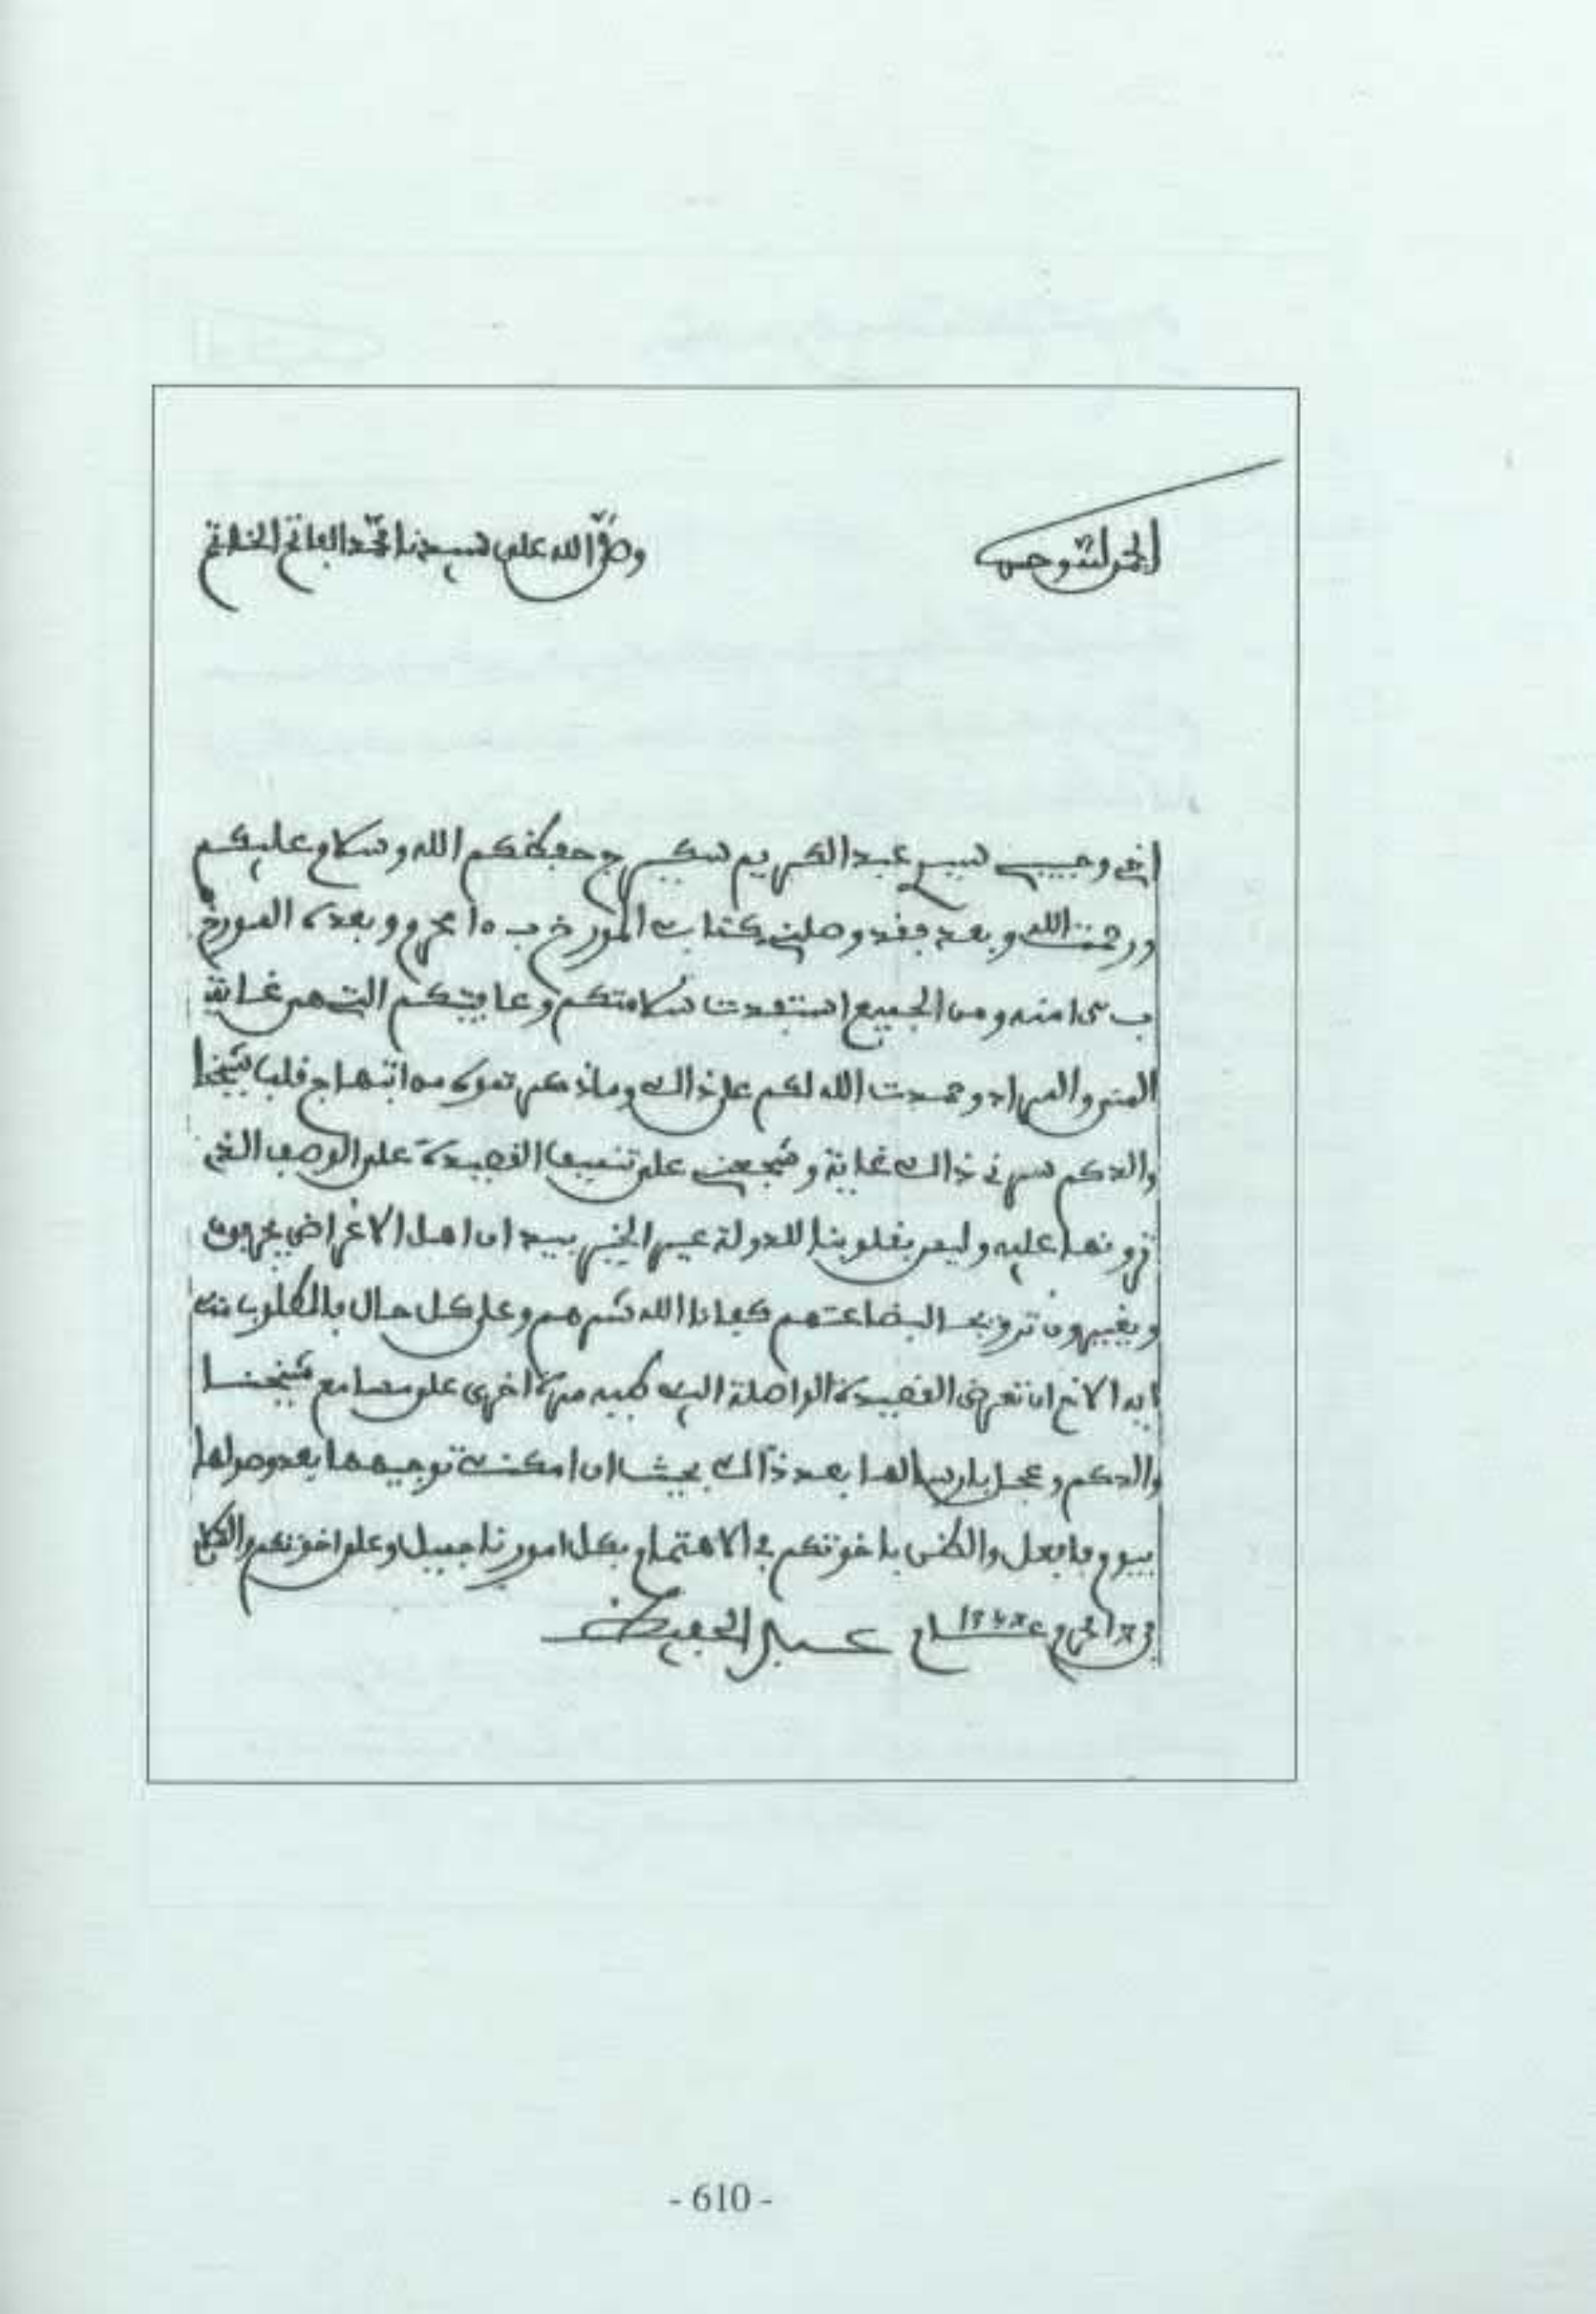 الحمد لله وحده
وصلى الله على سيدنا محمد الفاتح الخاتم
اخي وحبيبي سيدي عبد الكريم سكيرج حفظكم الله وسلام عليكم
ورحمت الله وبعد فقد وصلني كتابك المورخ ب 15 محرم وبعده المورخ
ب منه ومن الجميع استفدت سلامتكم وعافيتكم التي هي غاية
المنى والمراد وحمدت الله لكم على ذالك وما ذكرتموه من ابتهاج قلب شيخنا
والدكم سرني ذالك غاية وشجعني على القصيدة على الوصف الذي
ترونها عليه وليس بقلوبنا للدولة غير الخير بيد ان اهل الاغراض يحرفون
ويغيرون ترويجا لبضاعتهم كفانا الله شرهم وعلى كل حال بالمطلوب منك
ايه الاخ ان تعرض القصيدة الواصلة اليك طيه مرة اخرى على مسامع شيخنا
والدكم وعجل بارسالها بعد ذالك بحيث ان امكنك توجيهها بعد وصولها
بيوم فافعل والظن باخوتكم في الاهتمام بكل امورنا جميل وعلى اخوتكم والسلام
في محرم عام عبد الحفيظ
- 610 -